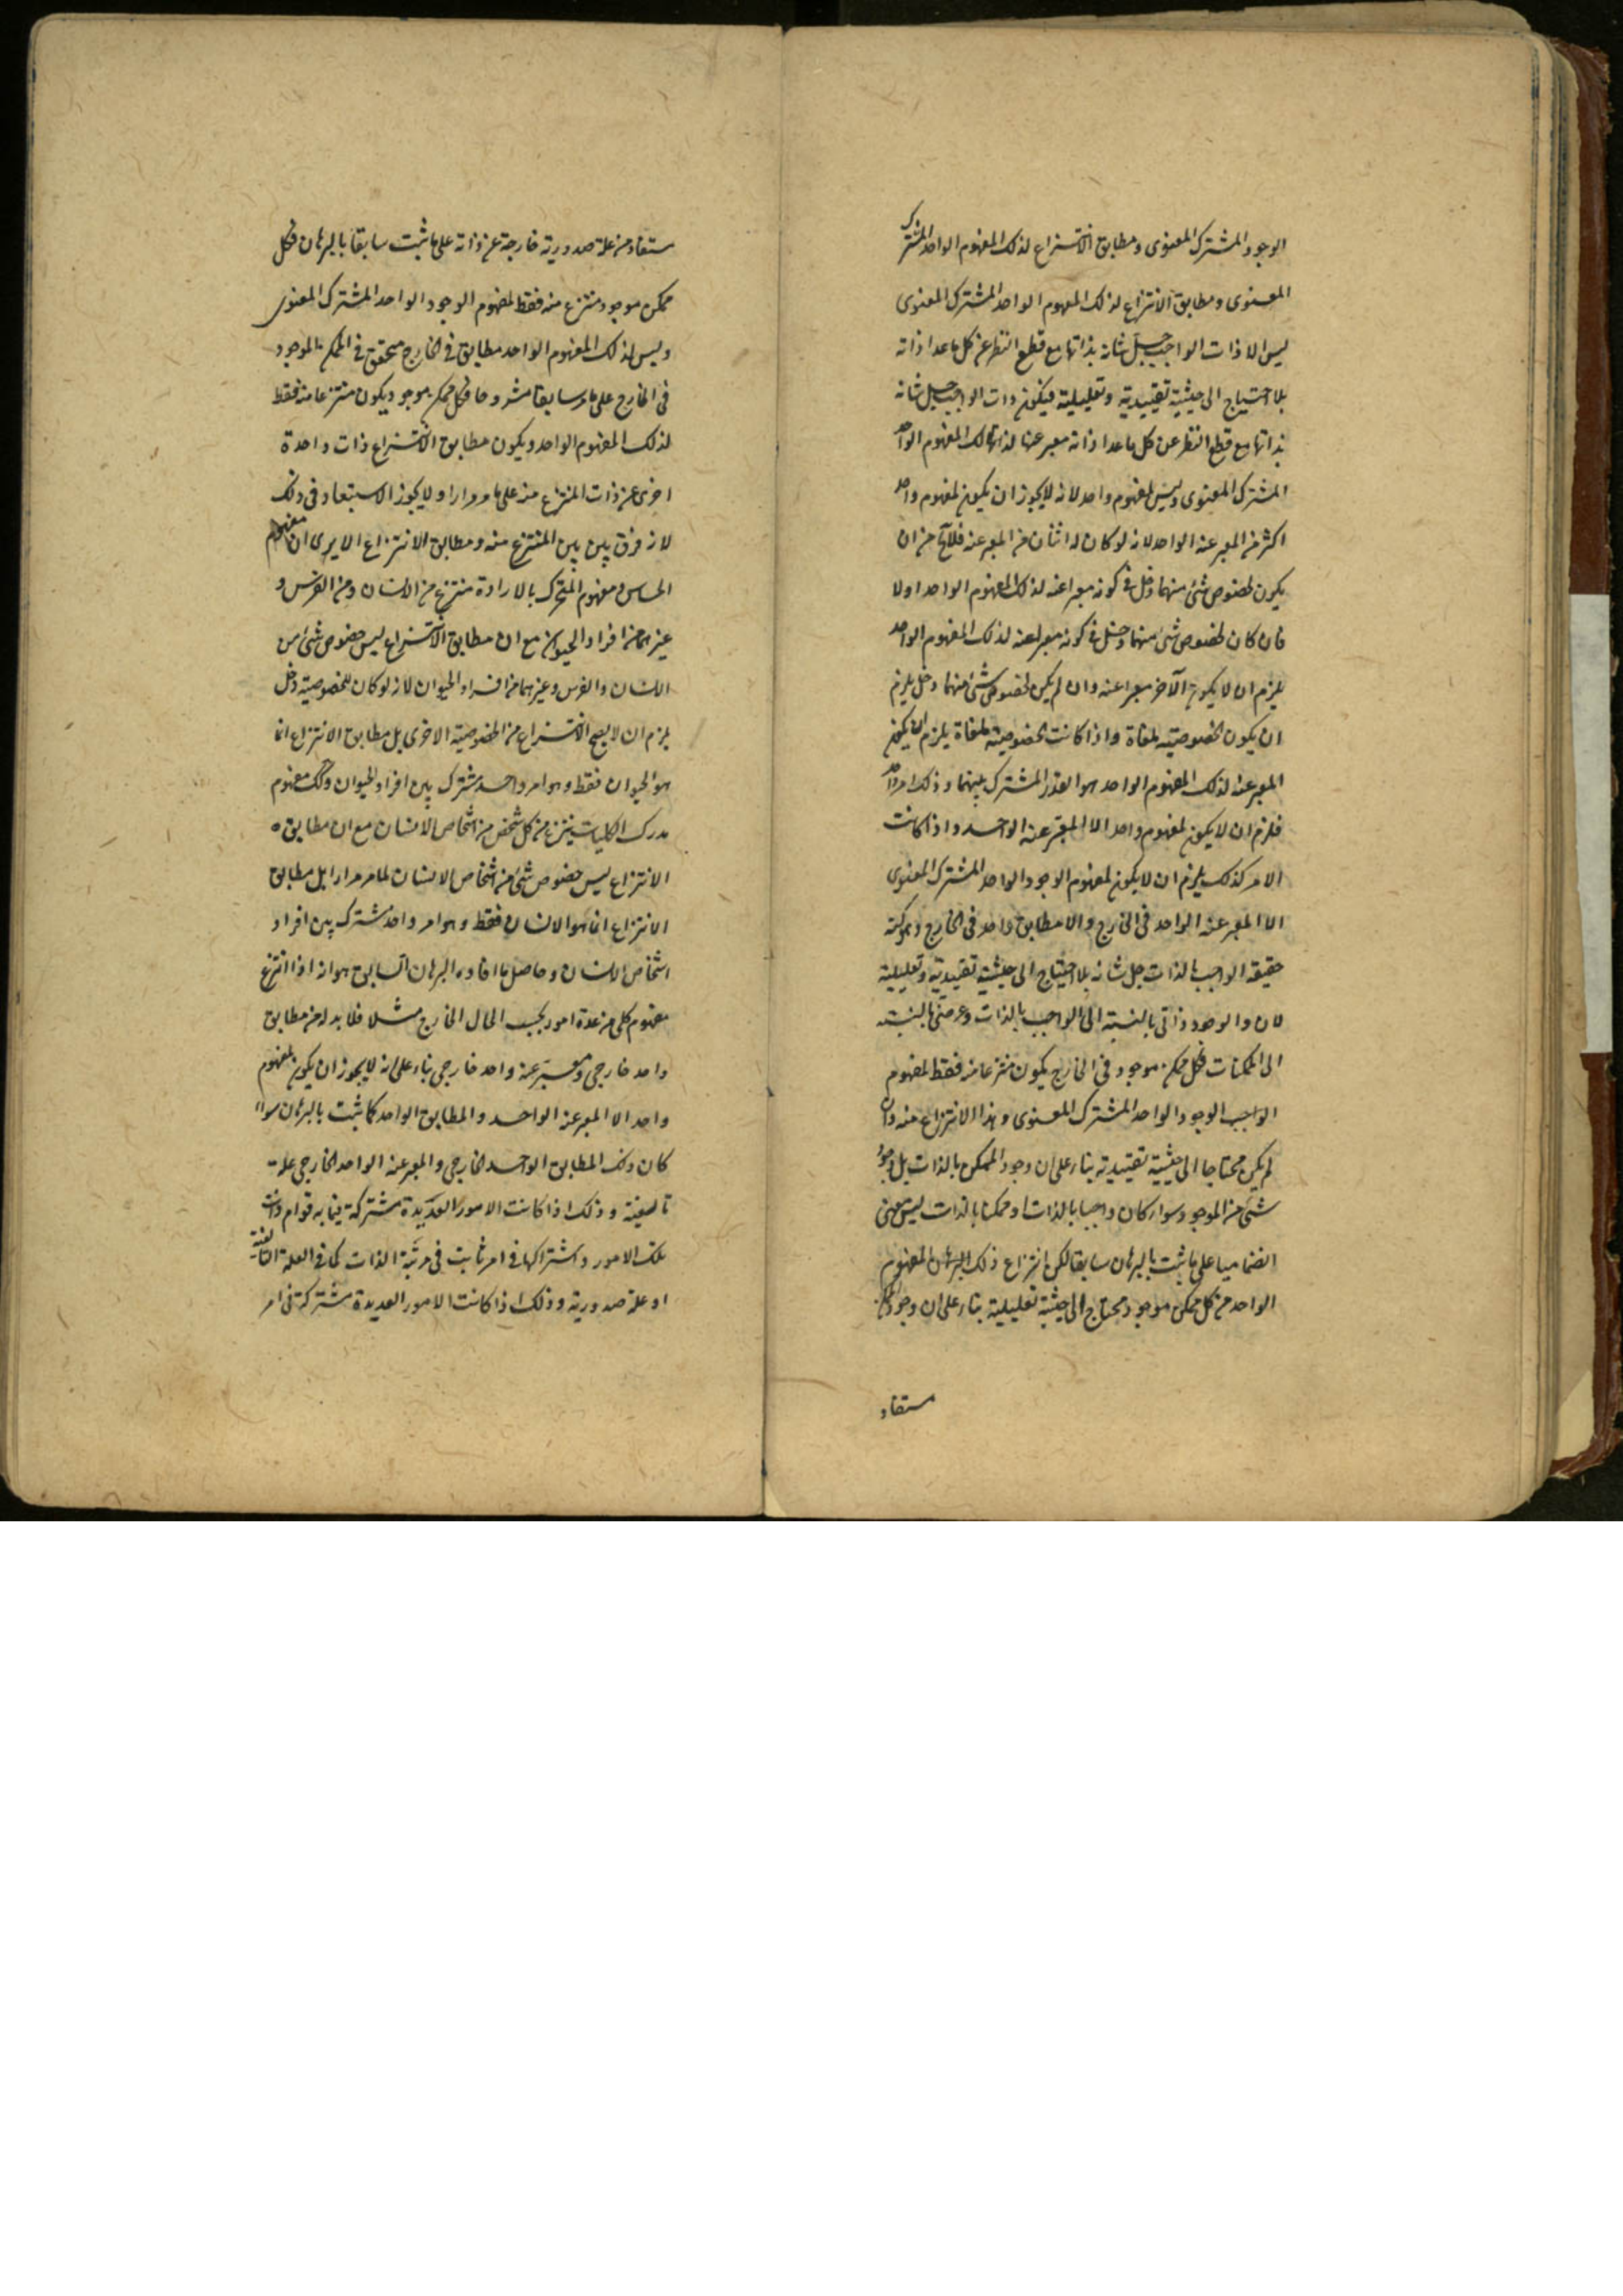 الوجود المشترك المعنوى ومطابق الانتزاع لذلك المفهوم الواحد المشترك
المعنوى ومطابق الانتزاع لذلك المفهوم الواحد المشترك المعنوى
ليس الا ذات الواجب جل شانه بذاتها مع قطع النظر عن كل ماعدا ذاته
بلا احتياج الى حيثية تقييدية وتعليلية فيكون ذات الواجب جل شانه
بذاتها مع قطع النظر عن كل ماعدا ذاته معبر عنها لذلك المفهوم الواحد
المشترك المعنوى وليس لمفهوم واحد لانه لا يجوز ان يكون لمفهوم واحد
اكثر من المعبر عنه الواحد لانه لو كان له اثنان من المعبر عنه فلا يخ من ان
يكون لخصوص شئ منهما دخل فى كونه معبرا عنه لذلك المفهوم الواحد اولا
فان كان لخصوص شئ منهما دخل فى كونه معبرا عنه لذلك المفهوم الواحد
يلزم ان لا يكون الآخر معبرا عنه وان لم يكن لخصوص شئ منهما دخل يلزم
ان يكون الخصوصية ملغاة واذا كانت الخصوصية ملغاة يلزم ان يكون
المعبر عنه لذلك المفهوم الواحد هو القدر المشترك بينهما وذلك امر واحد
فلزم ان لا يكون لمفهوم واحد الا المعبر عنه الواحد واذا كانت
الامر كذلك يلزم ان لا يكون لمفهوم الوجود الواحد المشترك المعنوى
الا المعبر عنه الواحد فى الخارج والا مطابق واحد فى الخارج وهو كنه
حقيقة الواجب بالذات جل شانه بلا احتياج الى حيثية تقييدية وتعليلية
لان والوجود ذاتى بالنسبة الى الواجب بالذات وعرضى بالنسبة
الى الممكنات فكل ممكن موجود فى الخارج يكون منتزعا منه فقط لمفهوم
الواجب الوجود الواحد المشترك المعنوى وهذا الانتزاع منه وان
لم يكن محتاجا الى حيثية تقييدية بناء على ان وجود الممكن بالذات بل وجود
شئ من الموجود سواء كان واجبا بالذات او ممكنا بالذات ليس معنى
انضماميا على ما ثبت بالبرهان سابقا لكن انتزاع ذلك المفهوم
الواحد من كل ممكن موجود محتاج الى حيثية تعليلية بناء على ان وجود الممكن
مستفاد
مستفاد من علة صدورية خارجة عن ذاته على ما ثبت سابقا بالبرهان فكل
ممكن موجود منتزع منه فقط لمفهوم الوجود الواحد المشترك المعنوى
وليس لذلك المفهوم الواحد مطابق فى الخارج متحقق فى الممكن الموجود
فى الخارج على ما مر سابقا مشروحا فكل ممكن موجود يكون منتزعا منه فقط
لذلك المفهوم الواحد ويكون مطابق الانتزاع ذات واحدة
اخرى غير ذات المنتزع منه على ما مر مرارا ولا يجوز الاستبعاد فى ذلك
لانه فرق بين المنتزع منه ومطابق الانتزاع الا يرى ان مفهوم
الحساس ومفهوم المتحرك بالارادة منتزع من الانسان ومن الفرس و
غيرهما من افراد الحيوان مع ان مطابق الانتزاع ليس خصوص شئ من
الانسان والفرس وغيرهما من افراد الحيوان لانه لو كان للخصوصية دخل
يلزم ان لا يصح الانتزاع من الخصوصية الاخرى بل مطابق الانتزاع انما
هو الحيوان فقط وهو امر واحد مشترك بين افراد الحيوان وكك مفهوم
مدرك الكليات ينتزع من كل شخص من اشخاص الانسان مع ان مطابق
الانتزاع ليس خصوص شئ من اشخاص الانسان لما مر مرارا بل مطابق
الانتزاع انما هو الانسان فقط وهو امر واحد مشترك بين افراد
اشخاص الانسان وحاصل ما افاده البرهان السابق هو انه اذا انتزع
مفهوم كلى من عدة امور بحسب الحال الخارج مثلا فلا بد له من مطابق
واحد خارجى ومعبر عنه واحد خارجى بناء على انه لا يجوز ان يكون لمفهوم
واحد الا المعبر عنه الواحد والمطابق الواحد كما ثبت بالبرهان سواء
كان ذلك المطابق الواحد الخارجى والمعبر عنه الواحد الخارجى علة
تاليفية وذلك اذا كانت الامور العديدة مشتركة فيما به قوام ذات
تلك الامور واشتراكها فى امر ثابت فى مرتبة الذات كما فى العلة التاليفية
او علة صدورية وذلك اذا كانت الامور العديدة مشتركة فى امر